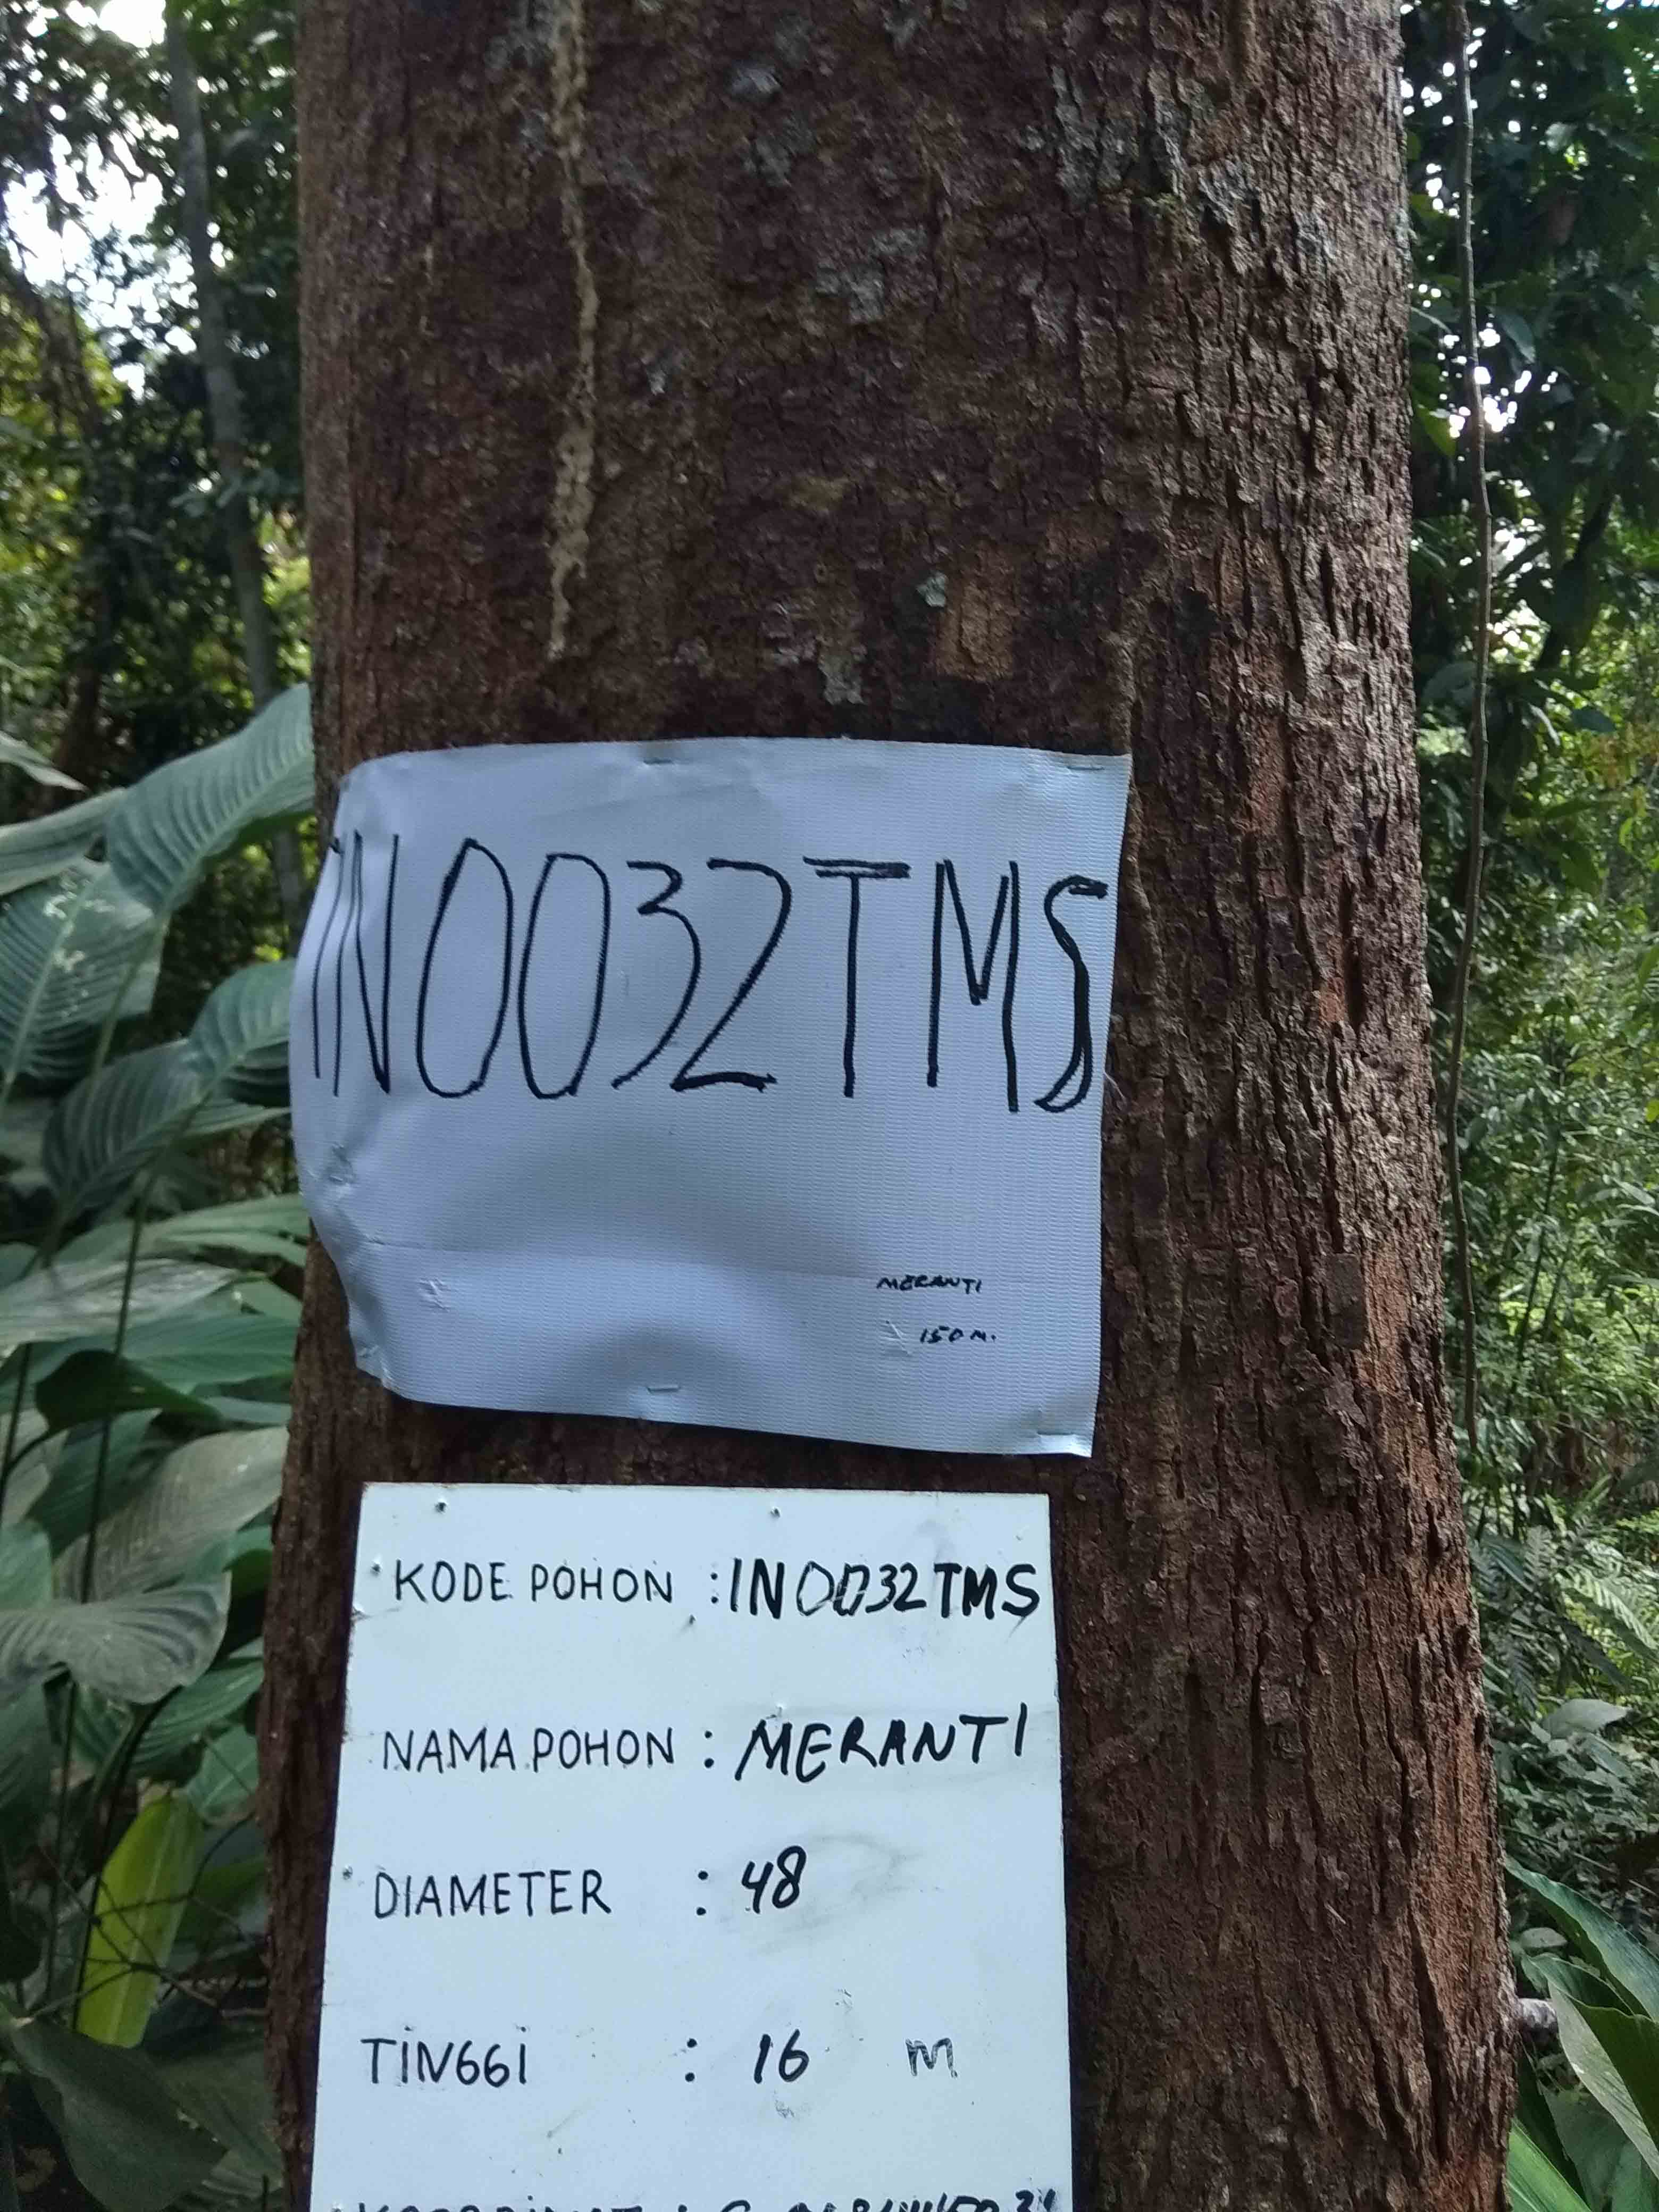 IN0032TMS
MERANTI
150 M.
KODE POHON : IN0032TMS
NAMA POHON : MERANTI
DIAMETER : 48
TINGGI : 16 M